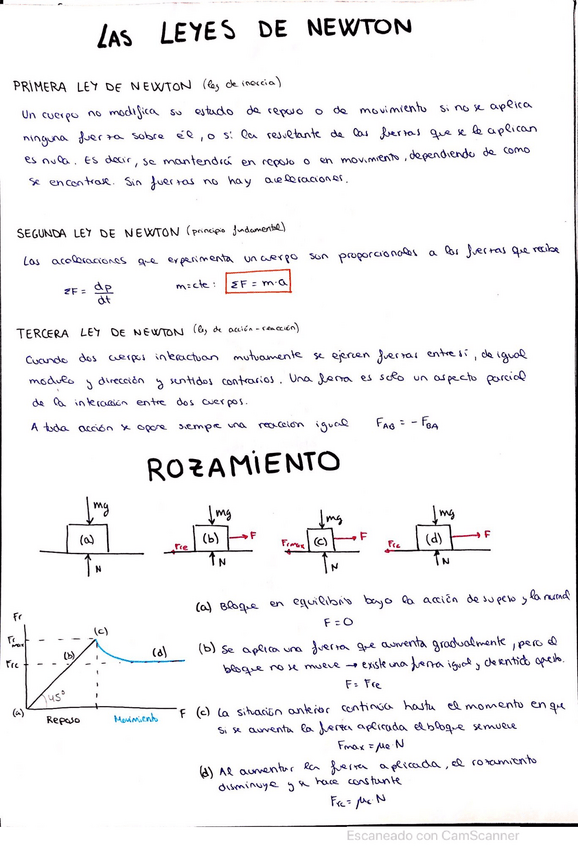 LAS LEYES DE NEWTON
PRIMERA LEY DE NEWTON (ley de inercia)
Un cuerpo no modifica su estado de reposo o de movimiento si no se aplica
ninguna fuerza sobre él, o si la resultante de las fuerzas que se le aplican
es nula. Es decir, se mantendrá en reposo o en movimiento, dependiendo de como
se encontrase. Sin fuerzas no hay aceleraciones.
SEGUNDA LEY DE NEWTON (principio fundamental)
Las aceleraciones que experimenta un cuerpo son proporcionales a las fuerzas que recibe
ΣF = dp/dt   m=cte: ΣF = m·a
TERCERA LEY DE NEWTON (ley de acción-reacción)
Cuando dos cuerpos interactúan mutuamente se ejercen fuerzas entre sí, de igual
modulo y dirección y sentidos contrarios. Una fuerza es solo un aspecto parcial
de la interacción entre dos cuerpos.
A toda acción se opone siempre una reacción igual   F_AB = -F_BA
ROZAMIENTO
mg (a) N
mg Fre (b) F N
mg Frmax (c) F N
mg Frc (d) F N
(a) Bloque en equilibrio bajo la acción de su peso y la normal
F=0
(b) Se aplica una fuerza que aumenta gradualmente, pero el
bloque no se mueve → existe una fuerza igual y de sentido opuesto.
F= Fre
(c) La situación anterior continúa hasta el momento en que
si se aumenta la fuerza aplicada el bloque se mueve
Fmax = μe·N
(d) Al aumentar la fuerza aplicada, el rozamiento
disminuye y se hace constante
Frc = μc·N
Fr
Fr max
Frc
(a) (b) (c) (d)
45°
Reposo Movimiento F
Escaneado con CamScanner